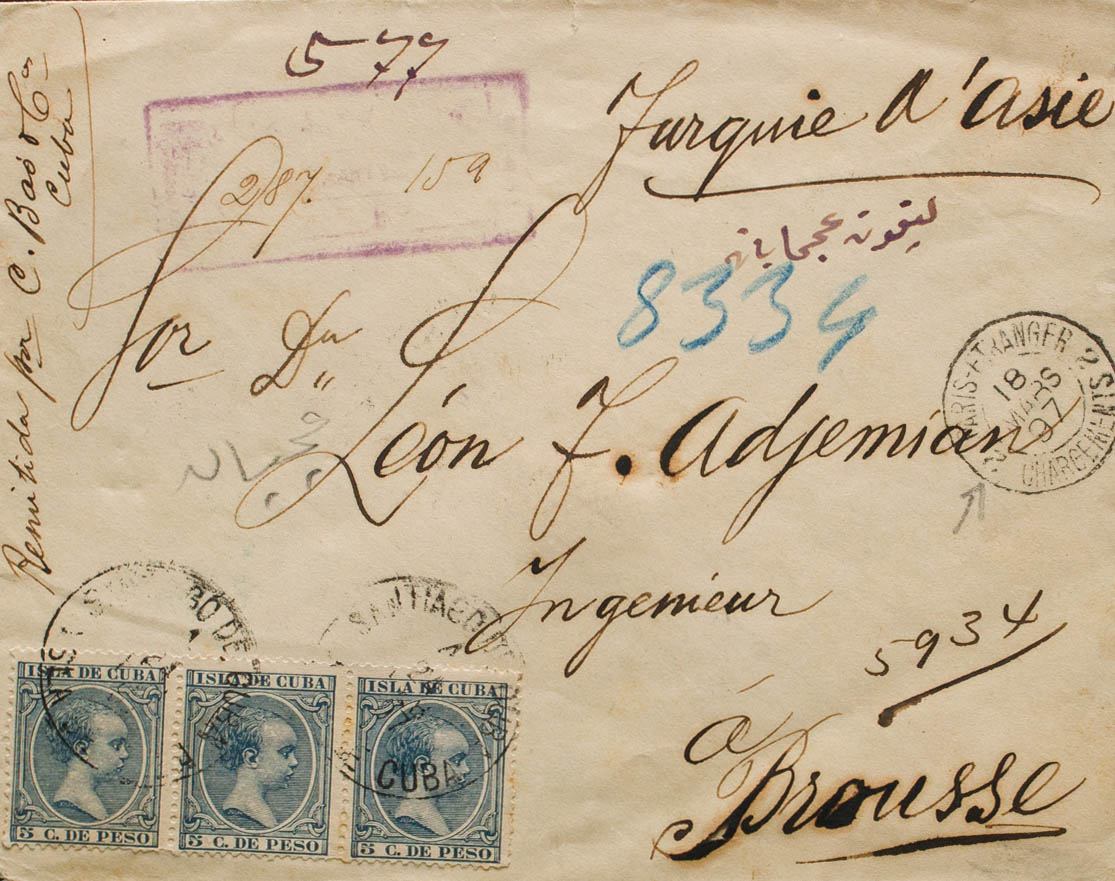 577
Turquie d'Asie
287. 159
8334
Sor Dn
León F. Adjemian
Ingenieur
5934
à
Brousse
Remitida por C. Bas & Ca
Cuba
PARIS-ETRANGER
18
MARS
97
SANTIAGO DE
CUBA
SANTIAGO DE
CUBA
ISLA DE CUBA
5 C. DE PESO
ISLA DE CUBA
5 C. DE PESO
ISLA DE CUBA
5 C. DE PESO